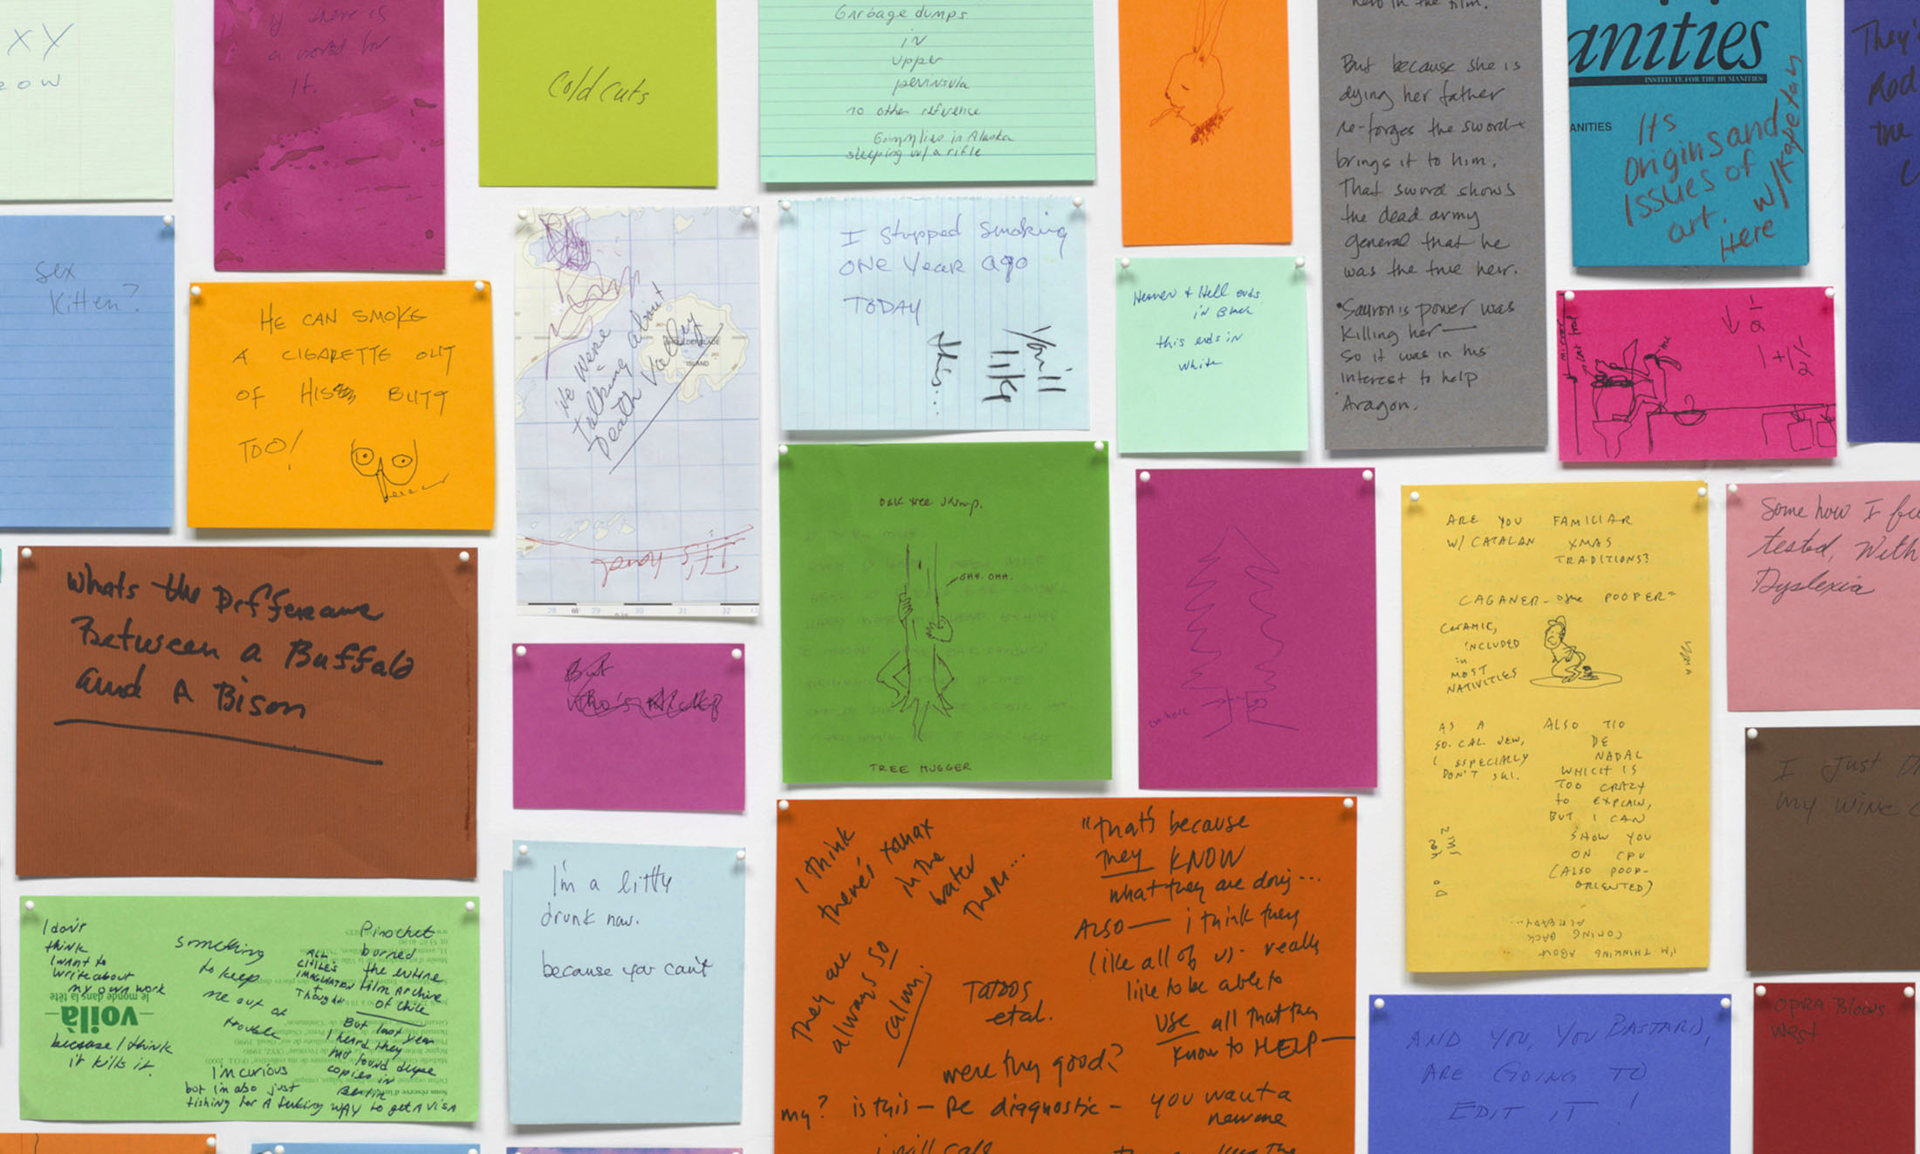 XY
eow
y there is
a word for
it.
Cold cuts
Garbage dumps
in
upper
peninsula
no other reference
in Alaska
sleeping w/a rifle
hero in the film.
But because she is
dying her father
re-forges the sword +
brings it to him.
That sword shows
the dead army
general that he
was the true heir.
*Sauron is power was
killing her —
so it was in his
interest to help
Aragon.
anities
INSTITUTE FOR THE HUMANITIES
ANITIES
Its
origins and
issues of
art. w/Kopetas
Here
They'
the
sex
Kitten?
HE CAN SMOKE
A CIGARETTE OUT
OF HIS BUTT
TOO!
We were
talking about
Death Valley
ISLAND
It's hard
28 29 30 31 32
I stopped smoking
ONE YEAR AGO
TODAY
You'll
like
this...
Heaven + Hell ends
in Black
this ends in
white
me
1
1+1/2
Whats the Difference
Between a Buffalo
and A Bison
But
who's
Oak tree stump.
OHH. OHH.
TREE HUGGER
ARE YOU FAMILIAR
W/ CATALAN XMAS
TRADITIONS?
CAGANER - the POOPER =
CERAMIC,
INCLUDED
in
MOST
NATIVITIES
AS A
SO. CAL JEW,
I ESPECIALLY
DON'T SKI.
ALSO TIO
DE
NADAL
WHICH IS
TOO CRAZY
to EXPLAIN,
BUT I CAN
SHOW YOU
ON CPU
(ALSO POOP-
ORIENTED)
I'M THINKING ABOUT
COMING BACK
ALREADY...
Some how I
tested, With
Dyslexia
I Just
my wine
I don't
think
I want to
write about
my own work
because I think
it kills it.
voilà
le monde dans la tête
something
to keep
me out of
trouble
ALL
CHILE'S
IMAGINATION
+
Thought
Pinochet
burned
the entire
film archive
of Chile
But last year
I heard they
found dupe
copies in
Berlin
I'm curious
but I'm also just
fishing for a fucking way to get a visa
I'm a litty
drunk now.
because you can't
I think
there's xanax
in the
water
there...
They are
always so
calm!
"that's because
they KNOW
what they are doing...
ALSO — i think they
like all of us - really
like to be able to
use all that they
know to HELP —
TATOOS
etal.
were they good?
my? is this — Re diagnostic — you want a
new one
i will call
AND YOU, YOU BASTARD,
ARE GOING TO
EDIT IT!
OPRA Blows
West